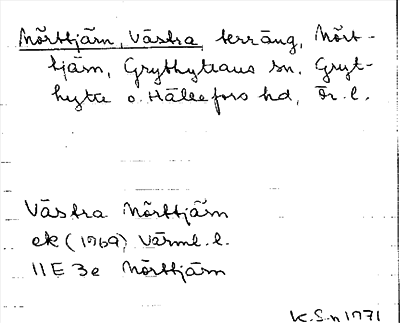 Mörttjärn, Västra, terräng, Mört-
tjärn, Grythyttans sn, Gryt-
hytte o. Hällefors hd, Ör. l.
Västra Mörttjärn
ek (1969) Värml. l.
11 E 3e Mörttjärn
K.S-n 1971